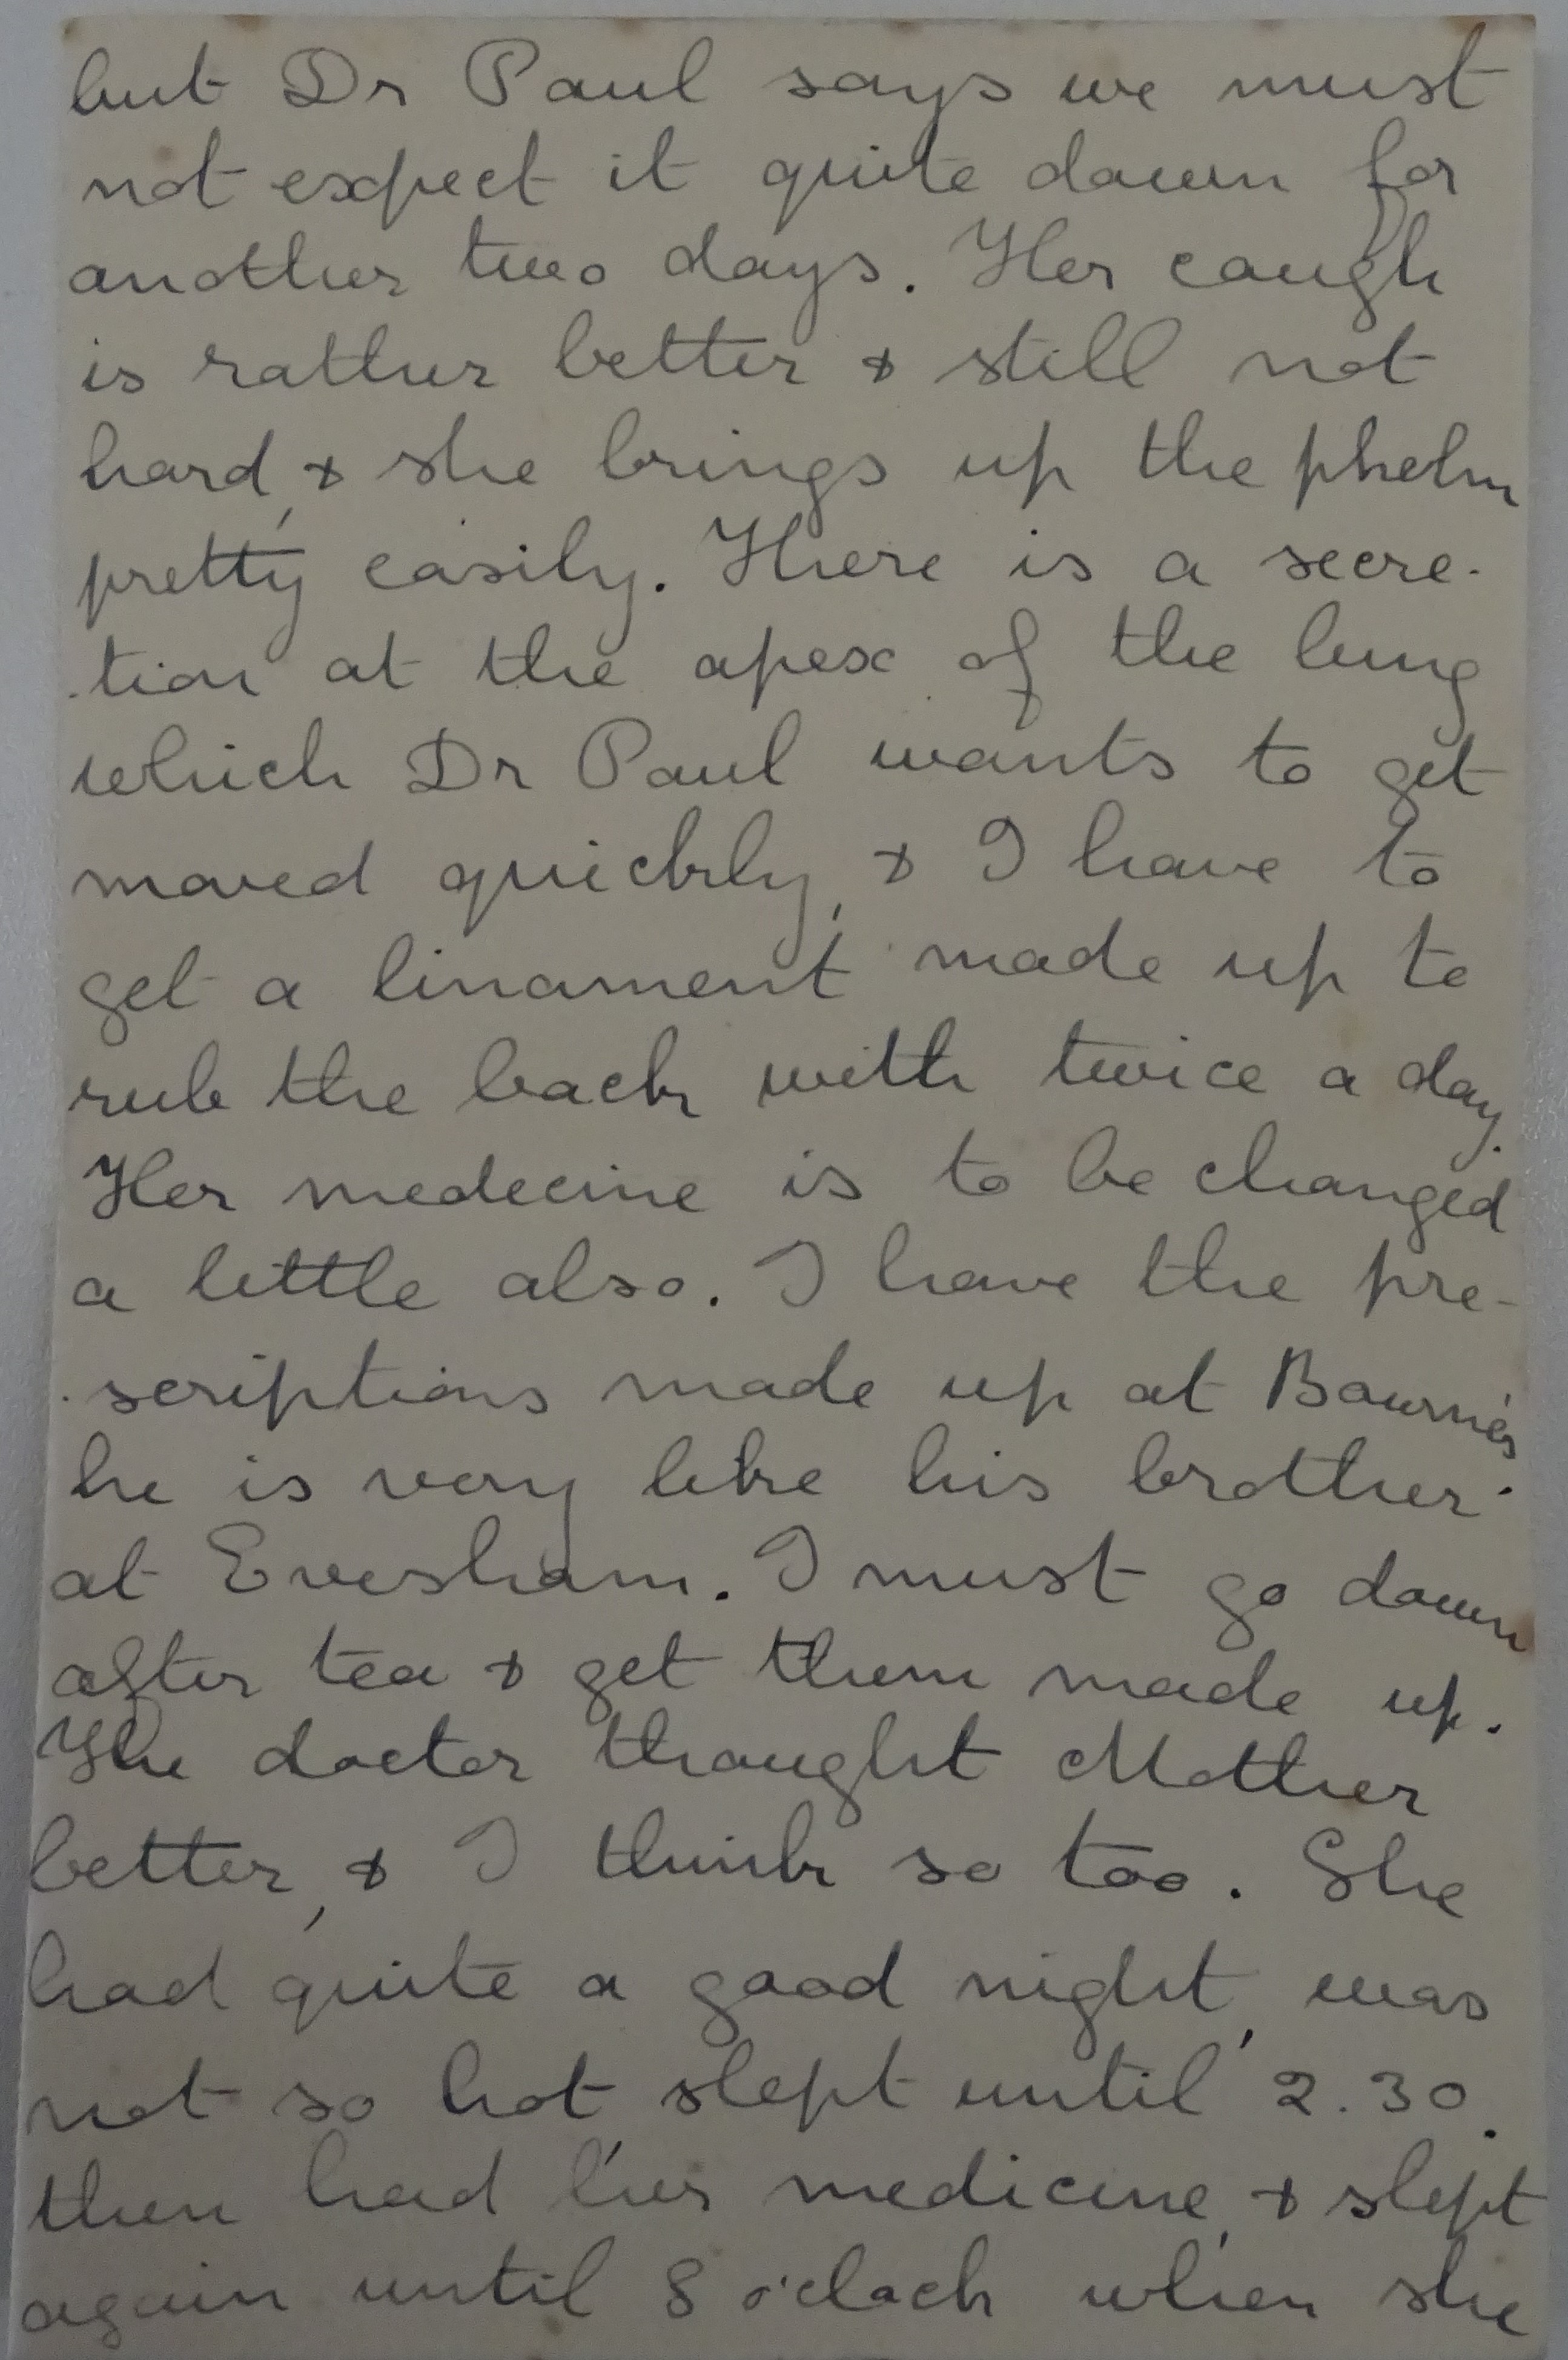 but Dr Paul says we must
not expect it quite down for
another two days. Her cough
is rather better & still not
hard, & she brings up the phelm
pretty easily. There is a secre-
-tion at the apex of the lung
which Dr Paul wants to get
moved quickly, & I have to
get a linament made up to
rub the back with twice a day.
Her medecine is to be changed
a little also. I have the pre-
-scriptions made up at Bourne's
he is very like his brother
at Evesham. I must go down
after tea & get them made up.
The doctor thought Mother
better, & I think so too. She
had quite a good night, was
not so hot, slept until 2.30.
then had her medicine, & slept
again until 8 o'clock when she